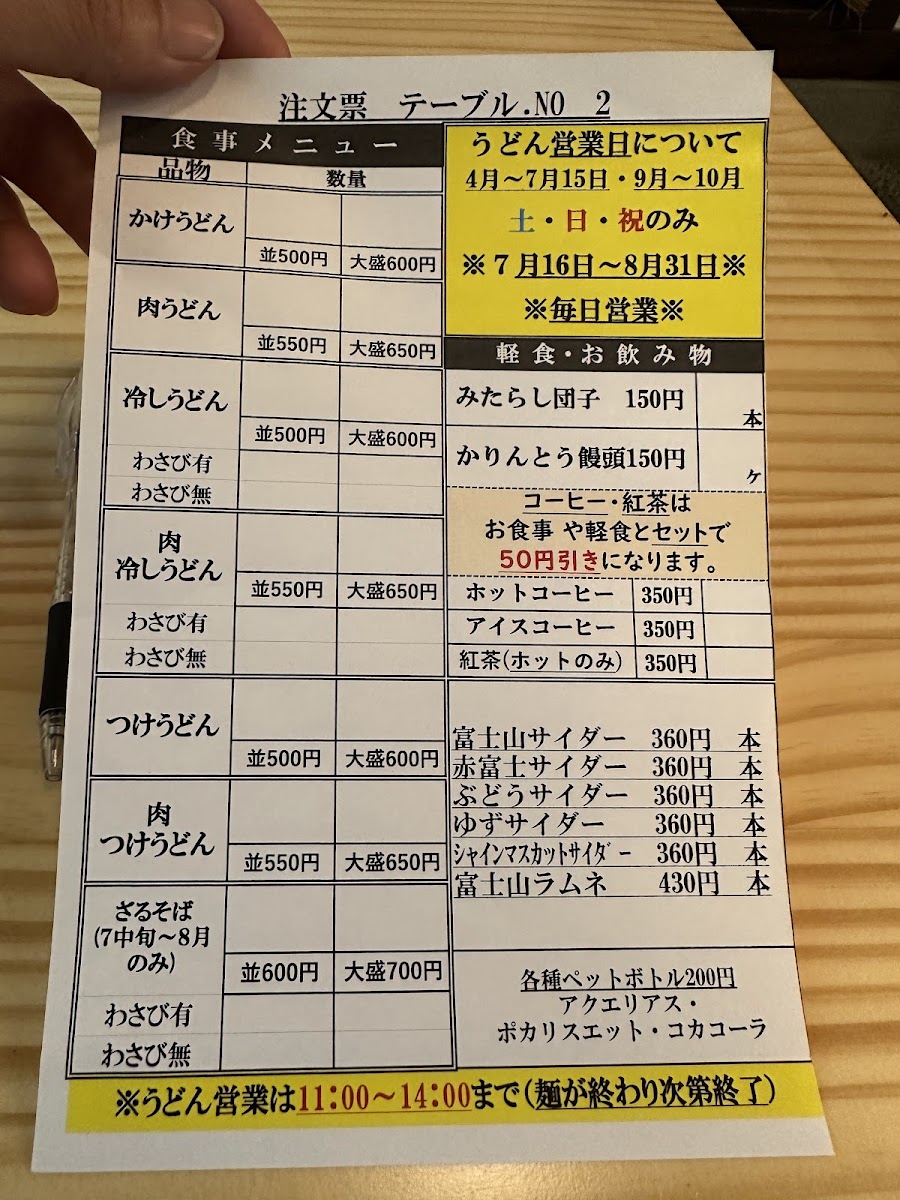 注文票　テーブル.NO　2
食事メニュー
品物　数量
かけうどん
並500円　大盛600円
肉うどん
並550円　大盛650円
冷しうどん
並500円　大盛600円
わさび有
わさび無
肉
冷しうどん
並550円　大盛650円
わさび有
わさび無
つけうどん
並500円　大盛600円
肉
つけうどん
並550円　大盛650円
ざるそば
(7中旬～8月
のみ)
並600円　大盛700円
わさび有
わさび無
うどん営業日について
4月～7月15日・9月～10月
土・日・祝のみ
※７月16日～8月31日※
※毎日営業※
軽食・お飲み物
みたらし団子　150円　本
かりんとう饅頭150円　ケ
コーヒー・紅茶は
お食事 や軽食とセットで
５０円引きになります。
ホットコーヒー　350円
アイスコーヒー　350円
紅茶(ホットのみ)　350円
富士山サイダー　360円　本
赤富士サイダー　360円　本
ぶどうサイダー　360円　本
ゆずサイダー　360円　本
ｼｬｲﾝﾏｽｶｯﾄｻｲﾀﾞｰ　360円　本
富士山ラムネ　430円　本
各種ペットボトル200円
アクエリアス・
ポカリスエット・コカコーラ
※うどん営業は11:00～14:00まで(麺が終わり次第終了)